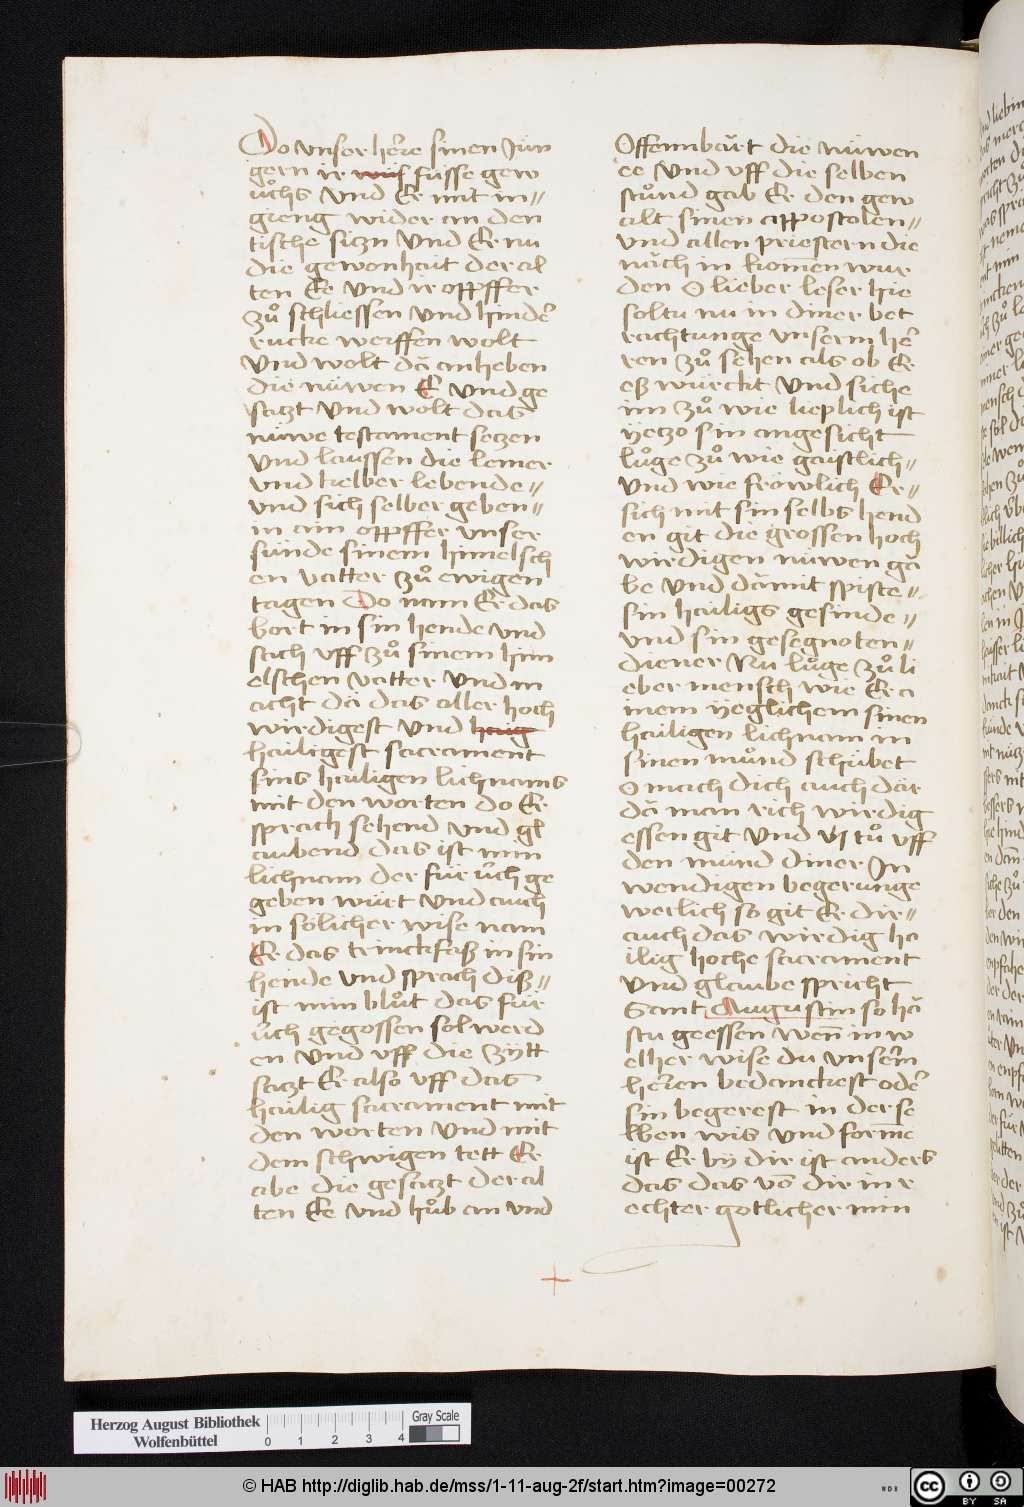 Do vnser herre sinen Jün
gern ir wüs füsse gew
üchs vnd Er mit in〃
gieng wider an den
tische siczn Vnd Er nu
die gewonhait der al
ten Ee vnd ir oppffer
zů schliessen vnd hinder
rucke werffen wolt
Vnd wolt dǎ anheben
die nüwen E vnd ge
saczt vnd wolt das
nüwe testament seczen
vnd laussen die lemer
vnd kelber lebende〃
vnd sich selber geben〃
in ain oppffer vnser
sünde sinem himelsch
en vatter zů ewigen
tagen Do nam Er das
bort in sin hende vnd
sach vff zů sinem him
elschen vatter vnd m
acht dǎ das aller hoch
wirdigest vnd haig
hailigest sacrament
sins hailigen lichnams
mit den worten do Er
sprach sehend vnd gl
aubend das ist min
lichnam der für ůch ge
geben würt vnd auch
in sölicher wise nam
Er das trinckfaß in sin
hende vnd sprach diß〃
ist min blůt das für
ůch gegossen sol werd
en vnd vff die zÿtt
saczt Er also vff das
hailig sacrament mit
den worten vnd mit
dem schwigen tett Er
abe die gesaczt der al
ten Ee vnd hůb an vnd
Offennbǎrt die nüwen
ee vnd vff die selben
stůnd gab Er den gew
alt sinen appostolen〃
vnd allen priestern die
nǎch in kom̄en wur
den O lieber leser hie
soltu nu in diner bet
rachtunge vnserm her
ren zů sehen als ob Er
eß würckt vnd siche
im zů wie lieplich ist
ÿeczo sin angesicht
lůge zů wie gaistlich〃
vnd wie fröwlich Er〃
sich mit sin selbs hend
en git die grossen hoch
wirdigen nüwen gǎ
be vnd dǎmit spiste〃
sin hailigs gesinde〃
vnd sin gesegnoten〃
diener Nu lůge zů li
eber mensch wie Er a
inem ÿeglichem sinen
hailigen lichnam in
sinen můnd schübet
O mach dich auch dǎr
dǎ man rich wirdig
essen git vnd tů vff
den mund diner In
wendigen begerunge
werlich so git Er dir〃
auch das wirdig ha
ilig hoche sacrament
vnd glaube spricht
Sant Augustin so hǎ
stu geessen wen̄ in w
elher wise du vnserm
herren bedanckest oder
sin begerest in der se
lben wis vnd form̄e
ist Er bÿ dir ist anders
das das vō dir in r
echter gotlicher min
Herzog August Bibliothek
Wolfenbüttel
0 1 2 3 4
Gray Scale
© HAB http://diglib.hab.de/mss/1-11-aug-2f/start.htm?image=00272
WDB
cc BY SA